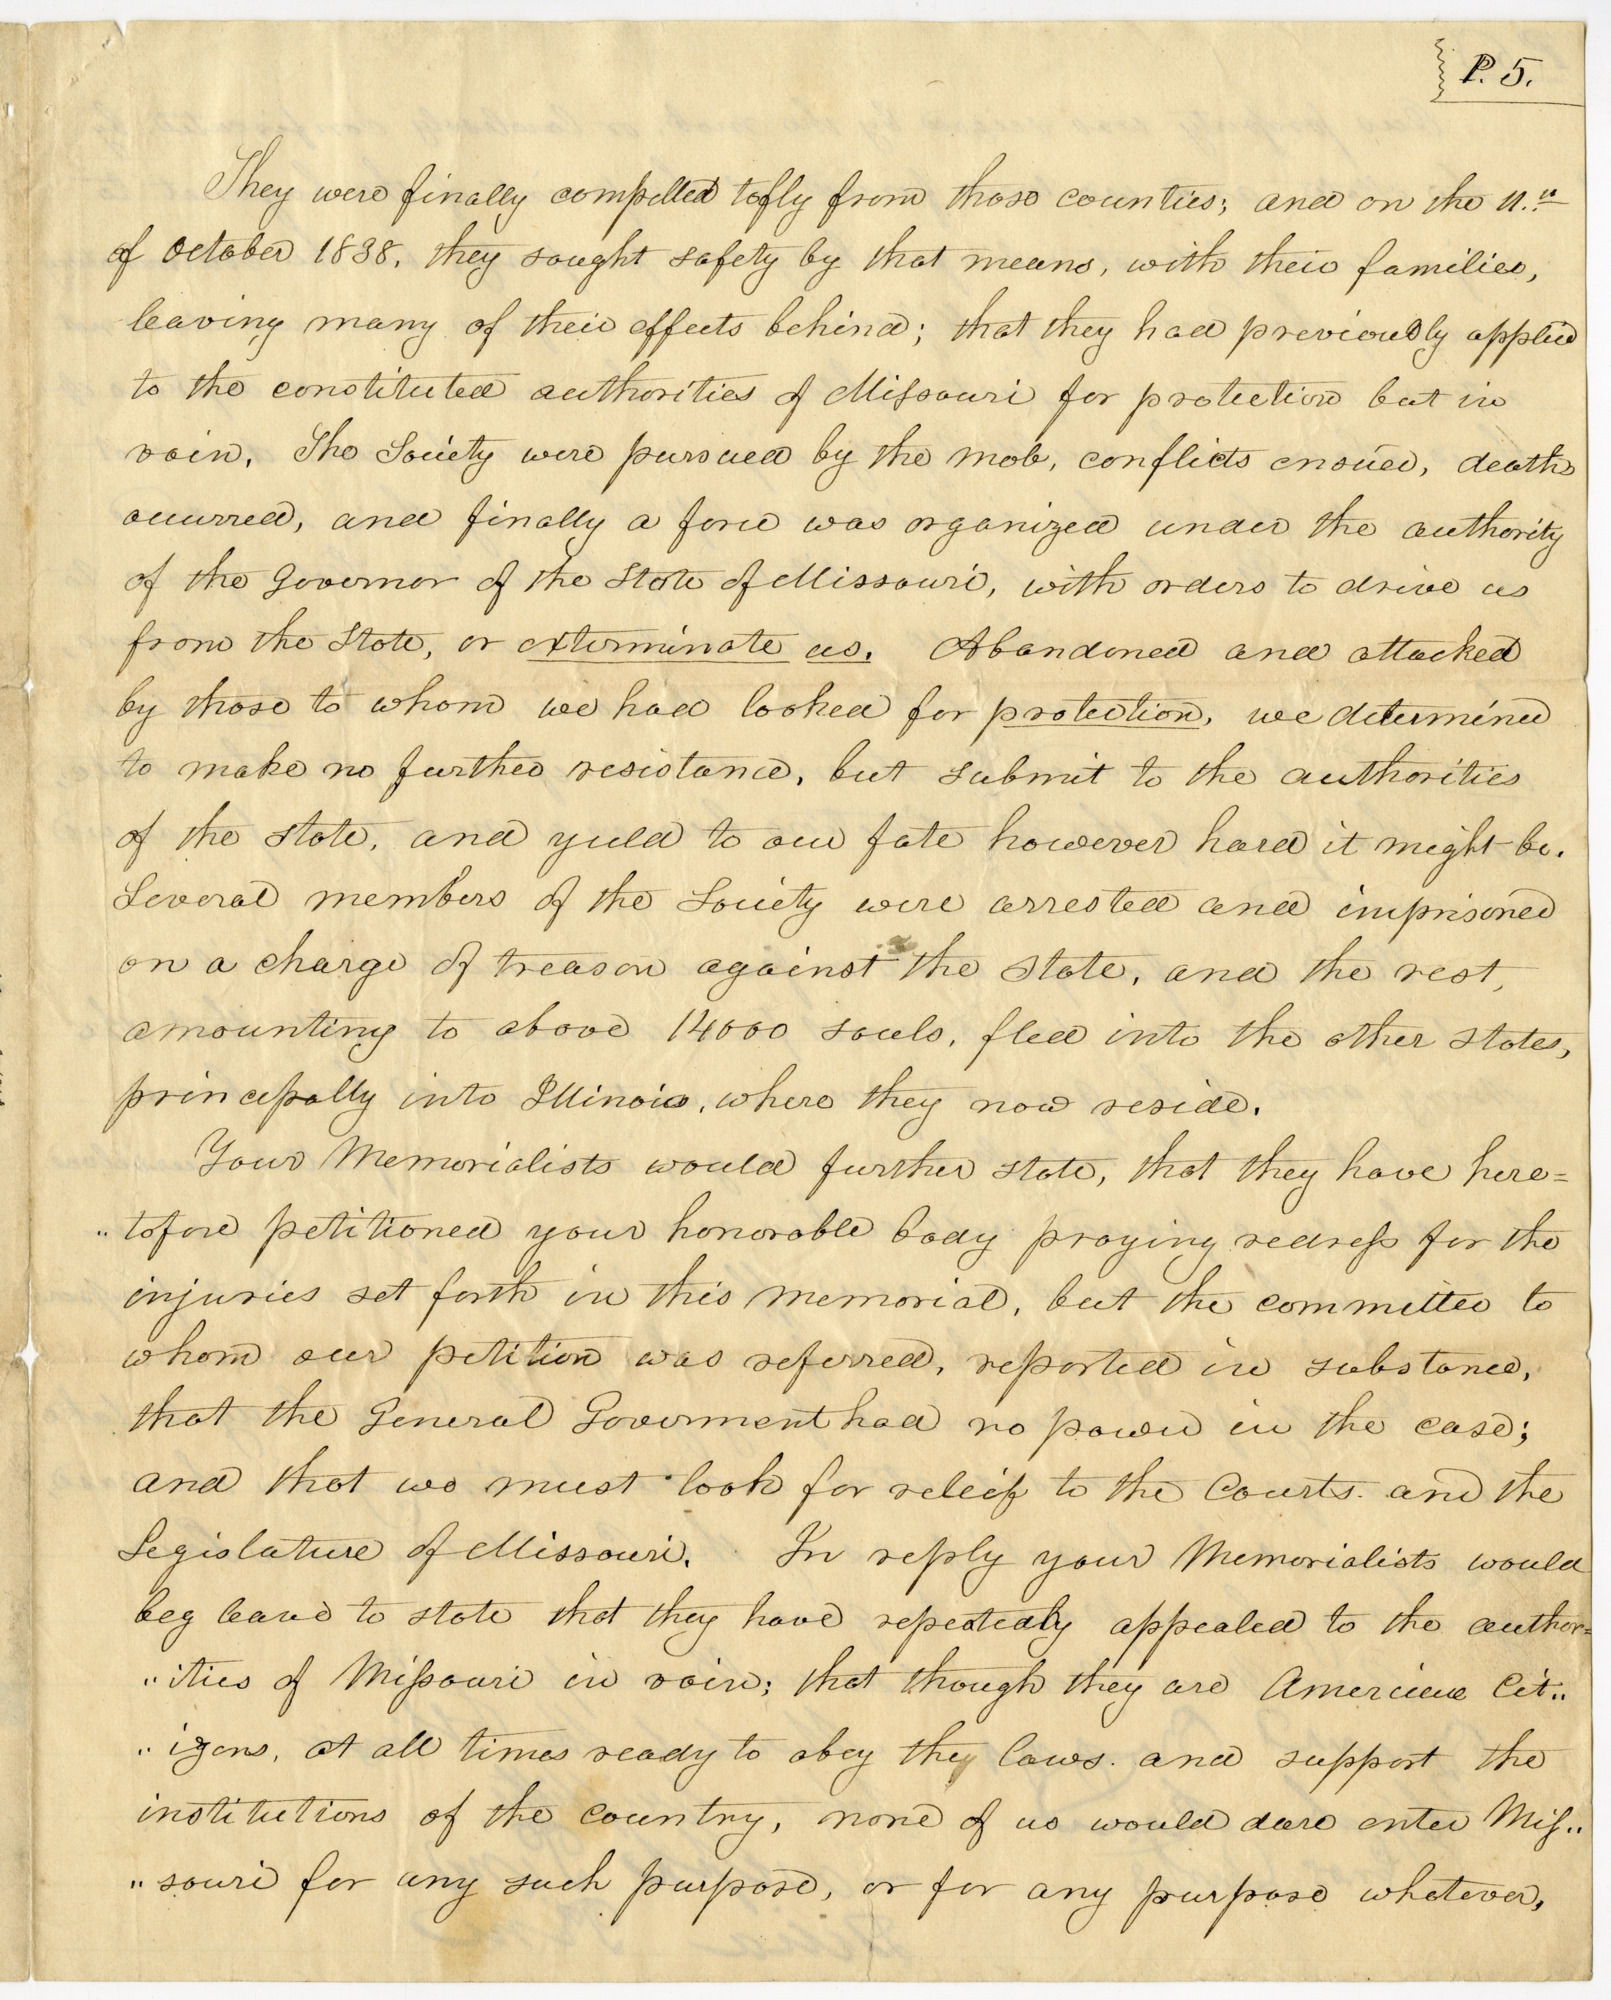 P. 5.
They were finally compelled to fly from those counties; and on the 11.th
of October 1838, they sought safety by that means, with their families,
leaving many of their effects behind; that they had previously applied
to the constituted authorities of Missouri for protection but in
vain. The Society were pursued by the mob, conflicts ensued, deaths
occurred, and finally a force was organized under the authority
of the Governor of the State of Missouri, with orders to drive us
from the State, or exterminate us. Abandoned and attacked
by those to whom we had looked for protection, we determined
to make no further resistance, but submit to the authorities
of the State, and yield to our fate however hard it might be.
Several members of the Society were arrested and imprisoned
on a charge of treason against the State, and the rest,
amounting to above 14000 souls, fled into the other States,
principally into Illinois, where they now reside.
Your Memorialists would further state, that they have here=
"tofore petitioned your honorable body praying redress for the
injuries set forth in this memorial, but the committee to
whom our petition was referred, reported in substance,
that the General Goverment had no power in the case;
and that we must look for releif to the Courts. and the
Legislature of Missouri. In reply your Memorialists would
beg leave to state that they have repeatedly appealed to the author=
"ities of Missouri in vain; that though they are American Cit"
"izens, at all times ready to obey the laws. and support the
institutions of the country, none of us would dare enter Mis"
"souri for any such purpose, or for any purpose whatever,